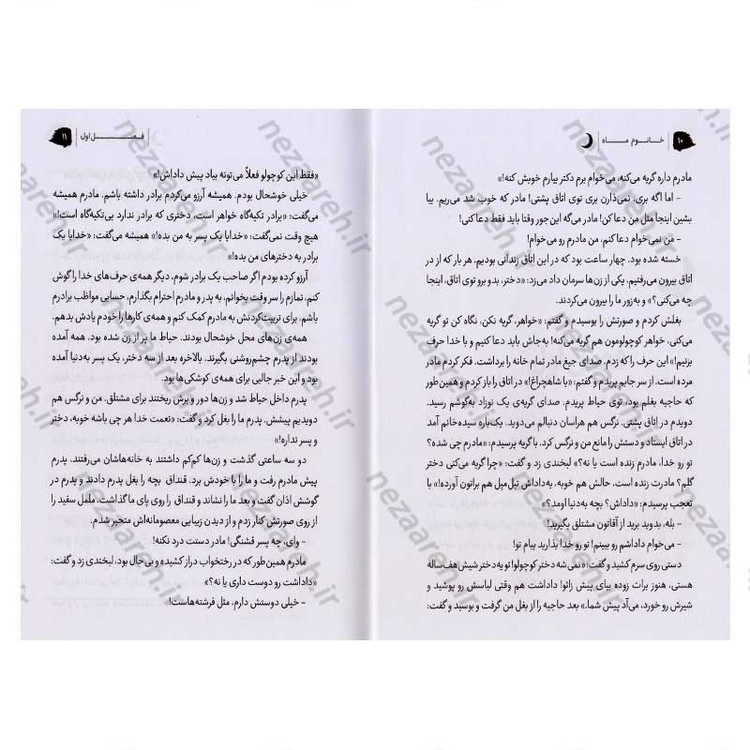 ۱۰ | خانوم ماه
مادرم داره گریه می‌کنه، می‌خوام برم دکتر بیارم خوبش کنه!»
- اما اگه بری، نمی‌ذارن بری توی اتاق پشتی! مادر که خوب شد می‌ریم. بیا
بشین اینجا مثل من دعا کن! مادر می‌گه این جور وقتا باید فقط دعا کنی!
- من نمی‌خوام دعا کنم، من مادرم رو می‌خوام!
خسته شده بود. چهار ساعت بود که در این اتاق زندانی بودیم. هر بار که از در
اتاق بیرون می‌رفتیم، یکی از زن‌ها سرمان داد می‌زد: «دختر، بدو برو توی اتاق، اینجا
چه می‌کنی؟» و به‌زور ما را بیرون می‌کردند.
بغلش کردم و صورتش را بوسیدم و گفتم: «خواهر، گریه نکن. نگاه کن تو گریه
می‌کنی، خواهر کوچولومون هم گریه می‌کنه! به‌جاش باید دعا کنیم و با خدا حرف
بزنیم!» این حرف را که زدم. صدای جیغ مادر تمام خانه را برداشت. فکر کردم مادر
مرده است. از سر جایم پریدم و گفتم: «یا شاهچراغ!» در اتاق را باز کردم و همین‌طور
که حاجیه بغلم بود، توی حیاط پریدم. صدای گریه‌ی یک نوزاد به‌گوشم رسید.
دویدم در اتاق پشتی. نرگس هم هراسان دنبالم می‌دوید. یک‌باره سیده‌خانم آمد
در اتاق ایستاد و دستش را مانع من و نرگس کرد. با گریه پرسیدم: «مادرم چی شده؟
تو رو خدا، مادرم زنده است یا نه؟» لبخندی زد و گفت: «چرا گریه می‌کنی دختر
گلم؟ مادرت زنده است، حالش هم خوبه، یه‌داداش تپل‌مپل هم براتون آورده!» با
تعجب پرسیدم: «داداش؟ بچه به‌دنیا اومد؟»
- بله، بدوید برید از آقاتون مشتلق بگیرید!
- می‌خوام داداشم رو ببینم! تو رو خدا بذارید بیام تو!
دستی روی سرم کشید و گفت: «نمی‌شه دختر کوچولو! تو یه دختر شیش هف‌ساله
هستی، هنوز برات زوده بیای پیش زائو! داداشت هم وقتی لباسش رو پوشید و
شیرش رو خورد، می‌آد پیش شما.» بعد حاجیه را از بغل من گرفت و بوسید و گفت:
فصل اول | ۱۱
«فقط این کوچولو فعلاً می‌تونه بیاد پیش داداش!»
خیلی خوشحال بودم. همیشه آرزو می‌کردم برادر داشته باشم. مادرم همیشه
می‌گفت: «برادر تکیه‌گاه خواهر است، دختری که برادر ندارد بی‌تکیه‌گاه است!»
هیچ وقت نمی‌گفت: «خدایا یک پسر به من بده!» همیشه می‌گفت: «خدایا یک
برادر به دخترهای من بده!»
آرزو کرده بودم اگر صاحب یک برادر شوم، دیگر همه‌ی حرف‌های خدا را گوش
کنم، نمازم را سر وقت بخوانم، به پدر و مادرم احترام بگذارم، حسابی مواظب برادرم
باشم. برای تربیت‌کردنش به مادرم کمک کنم و همه‌ی کارها را خودم یادش بدهم.
همه‌ی زن‌های محل خوشحال بودند. حیاط ما پر از زن شده بود. همه آمده
بودند از پدرم چشم‌روشنی بگیرند. بالاخره بعد از سه دختر، یک پسر به‌دنیا آمده
بود و این خبر جالبی برای همه‌ی کوشکی‌ها بود.
پدرم داخل حیاط شد و زن‌ها دور و برش ریختند برای مشتلق. من و نرگس هم
دویدیم پیشش. پدرم ما را بغل کرد و گفت: «نعمت خدا هر چی باشه خوبه، دختر
و پسر نداره!»
دو سه ساعتی گذشت و زن‌ها کم‌کم داشتند به خانه‌هاشان می‌رفتند. پدرم
پیش مادرم رفت و ما را با خودش برد. قنداق بچه را بغل پدرم دادند و پدرم در
گوشش اذان گفت و بعد ما را نشاند و قنداق را روی پای ما گذاشت. ململ سفید را
از روی صورتش کنار زدم و از دیدن زیبایی معصومانه‌اش متحیر شدم.
- وای، چه پسر قشنگی! مادر دستت درد نکنه!
مادرم همین‌طور که در رختخواب دراز کشیده و بی‌حال بود، لبخندی زد و گفت:
«داداشت رو دوست داری یا نه؟»
- خیلی دوستش دارم، مثل فرشته‌هاست!
nezaareh.ir